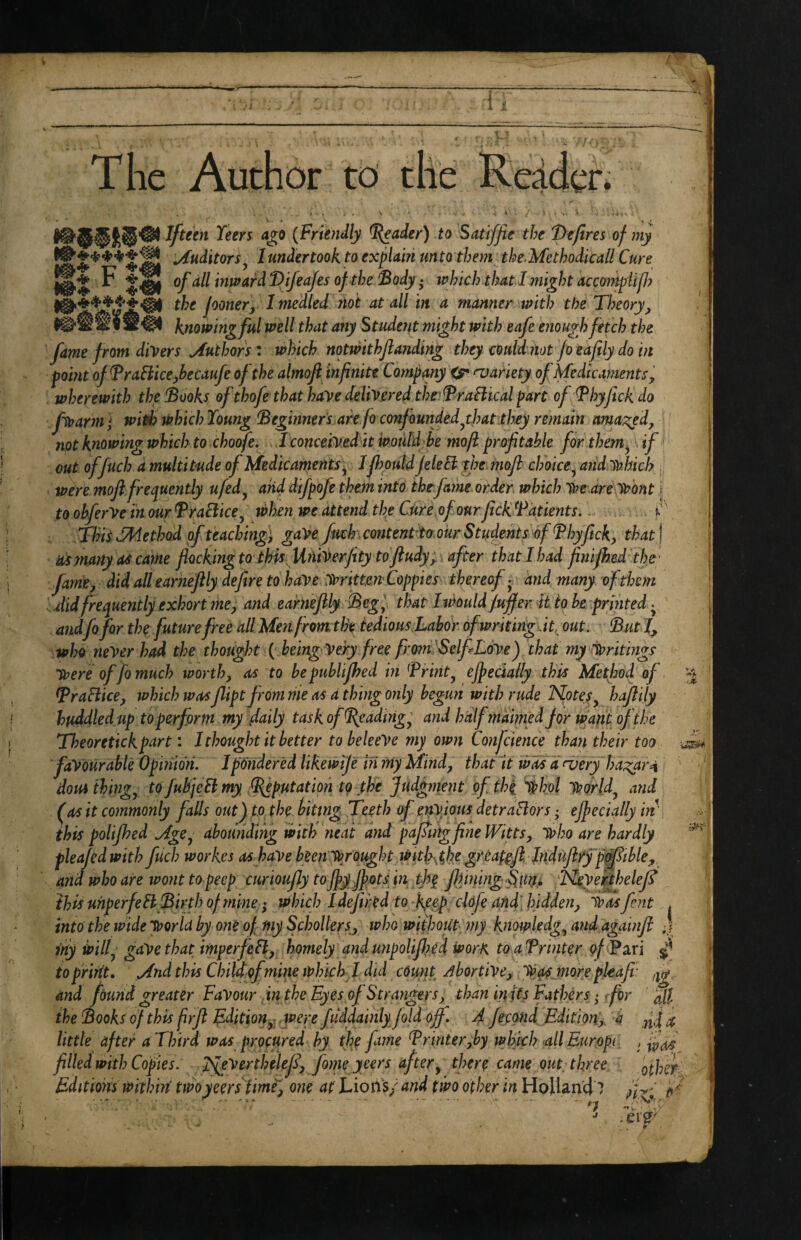 The Author to the Reader.
Fifteen Yeers ago (Friendly Reader) to Satisfie the Desires of my
Auditors, I undertook to explain unto them the Methodicall Cure
of all inward Diseases of the Body; which that I might accomplish
the sooner, I medled not at all in a manner with the Theory,
knowing ful well that any Student might with ease enough fetch the
same from divers Authors: which notwithstanding they could not so easily do in
point of Practice, because of the almost infinite Company & variety of Medicaments,
wherewith the Books of those that have delivered the Practical part of Physick do
swarm; with which Young Beginners are so confounded, that they remain amazed,
not knowing which to choose. I conceived it would be most profitable for them, if
out of such a multitude of Medicaments, I should select the most choice, and which
were most frequently used, and dispose them into the same order which we are wont
to observe in our Practice, when we attend the Cure of our sick Patients.
This Method of teaching, gave such content to our Students of Physick, that
as many as came flocking to this University to study, after that I had finished the
same, did all earnestly desire to have written Coppies thereof; and many of them
did frequently exhort me, and earnestly Beg, that I would suffer it to be printed;
and so for the future free all Men from the tedious Labor of writing it out. But I,
who never had the thought (being very free from Self-Love) that my writings
were of so much worth, as to be published in Print, especially this Method of
Practice, which was slipt from me as a thing only begun with rude Notes, hastily
huddled up to perform my daily task of Reading, and half maimed for want of the
Theoretick part: I thought it better to beleeve my own Conscience than their too
favourable Opinion. I pondered likewise in my Mind, that it was a very hazar
dous thing, to subject my Reputation to the Judgment of the whol world, and
(as it commonly falls out) to the biting Teeth of envious detractors; especially in
this polished Age, abounding with neat and passing fine Witts, who are hardly
pleased with such workes as have been wrought with the greatest Industry possible,
and who are wont to peep curiously to spy spots in the shining Sun. Nevertheless
this unperfect Birth of mine; which I desired to keep close and hidden, was sent
into the wide world by one of my Schollers, who without my knowledg, and against
my will, gave that imperfect, homely and unpolished work to a Printer of Pari
to print. And this Child of mine which I did count Abortive, was more pleasi
and found greater Favour in the Eyes of Strangers, than in its Fathers; for
the Books of this first Edition, were suddainly sold off. A second Edition, a
little after a Third was procured by the same Printer, by which all Europ
filled with Copies. Nevertheless, some yeers after, there came out three
Editions within two yeers time, one at Lions, and two other in Holland